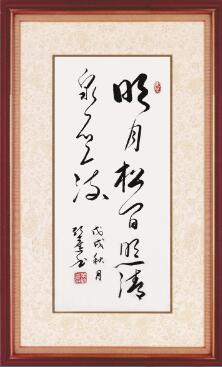 明月松间照清
泉石上流
戊戌秋月